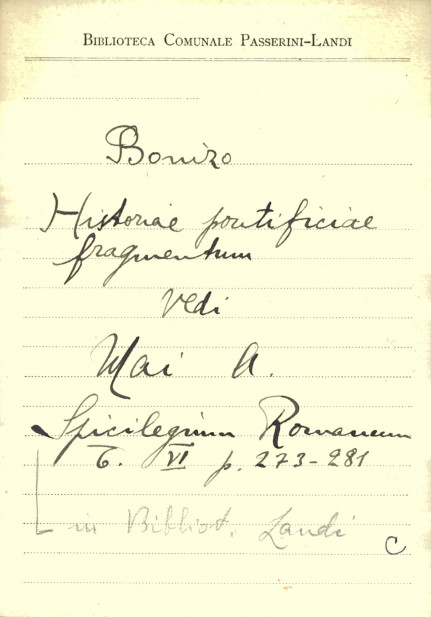 BIBLIOTECA COMUNALE PASSERINI-LANDI
Bonizo
Historiae pontificiae
fragmentum
Vedi
Mai A.
Spicilegium Romanum
T. VI p. 273-281
in Bibliot. Landi
C